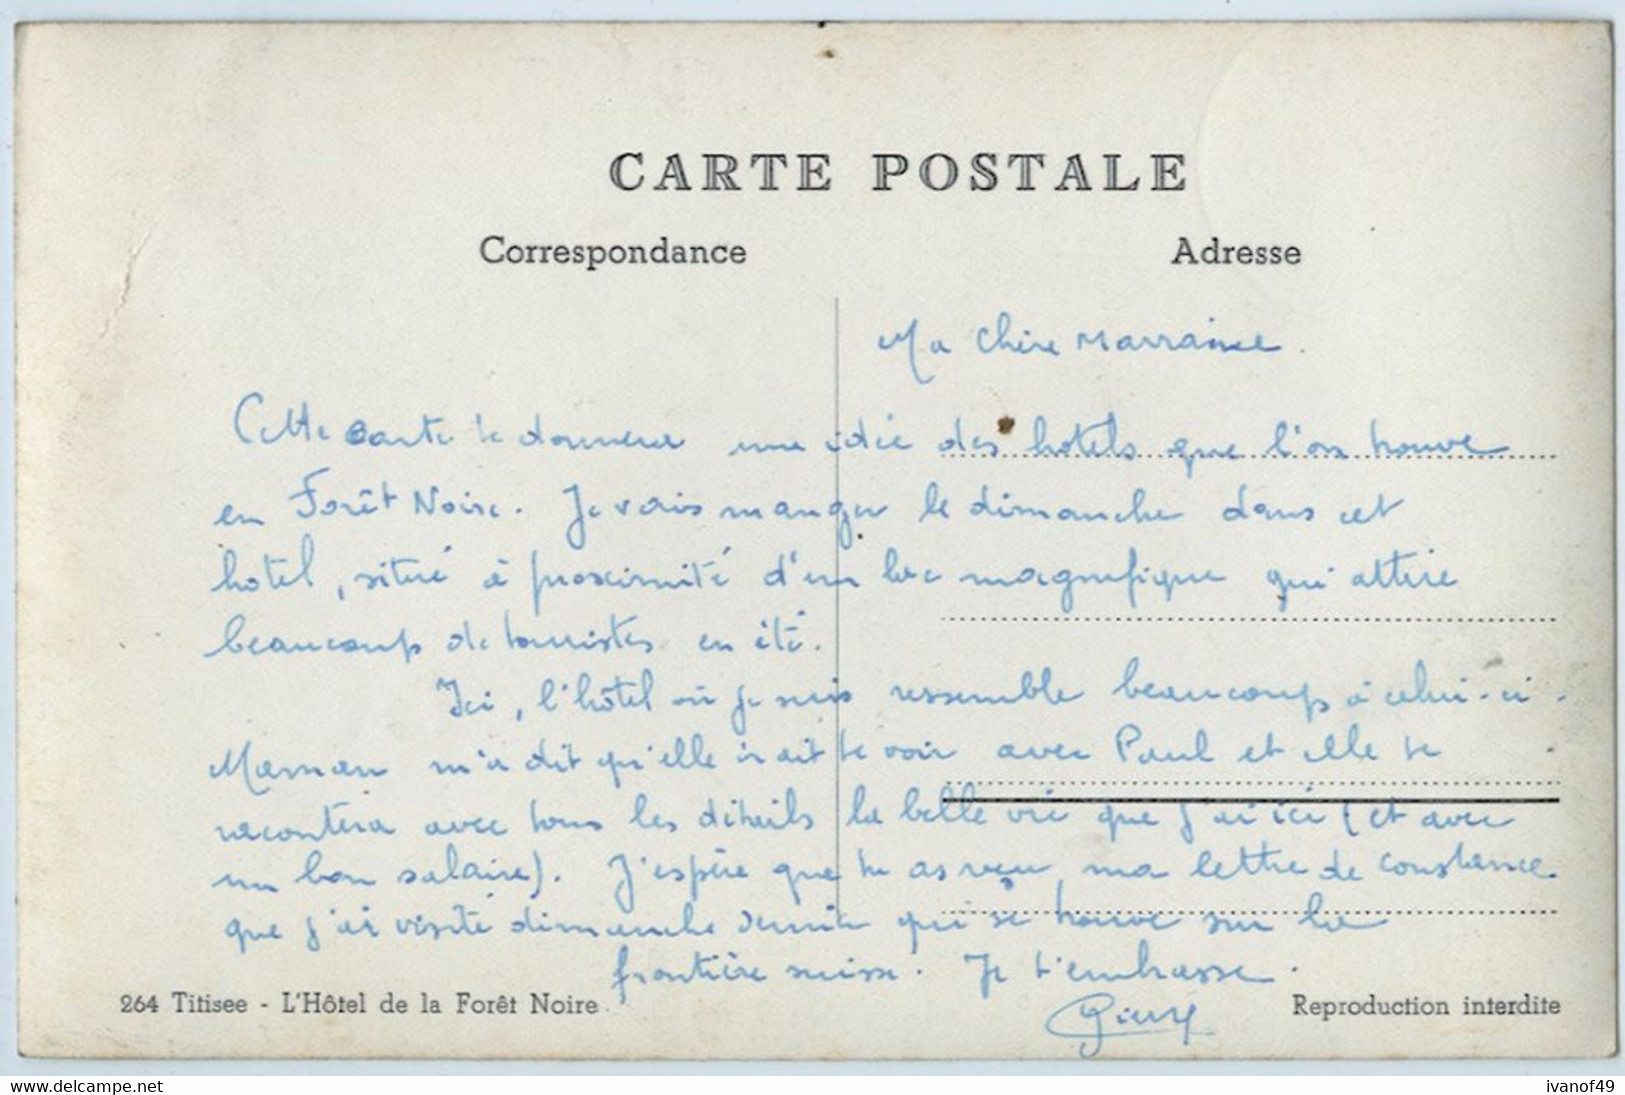 CARTE POSTALE
Correspondance
Adresse
Ma Chère Marraine.
Cette carte te donnera une idée des hotels que l'on trouve
en Forêt Noire. Je vais manger le dimanche dans cet
hotel, situé à proximité d'un lac magnifique qui attire
beaucoup de touristes en été.
Ici, l'hôtel où je suis ressemble beaucoup à celui-ci.
Maman m'a dit qu'elle irait te voir avec Paul et elle te
racontera avec tous les détails la belle vie que j'ai ici (et avec
un bon salaire). J'espère que tu as reçu ma lettre de Constance
que j'ai visité dimanche dernier qui se trouve sur la
frontière suisse. Je t'embrasse.
264 Titisee - L'Hôtel de la Forêt Noire
Reproduction interdite
www.delcampe.net
ivanof49